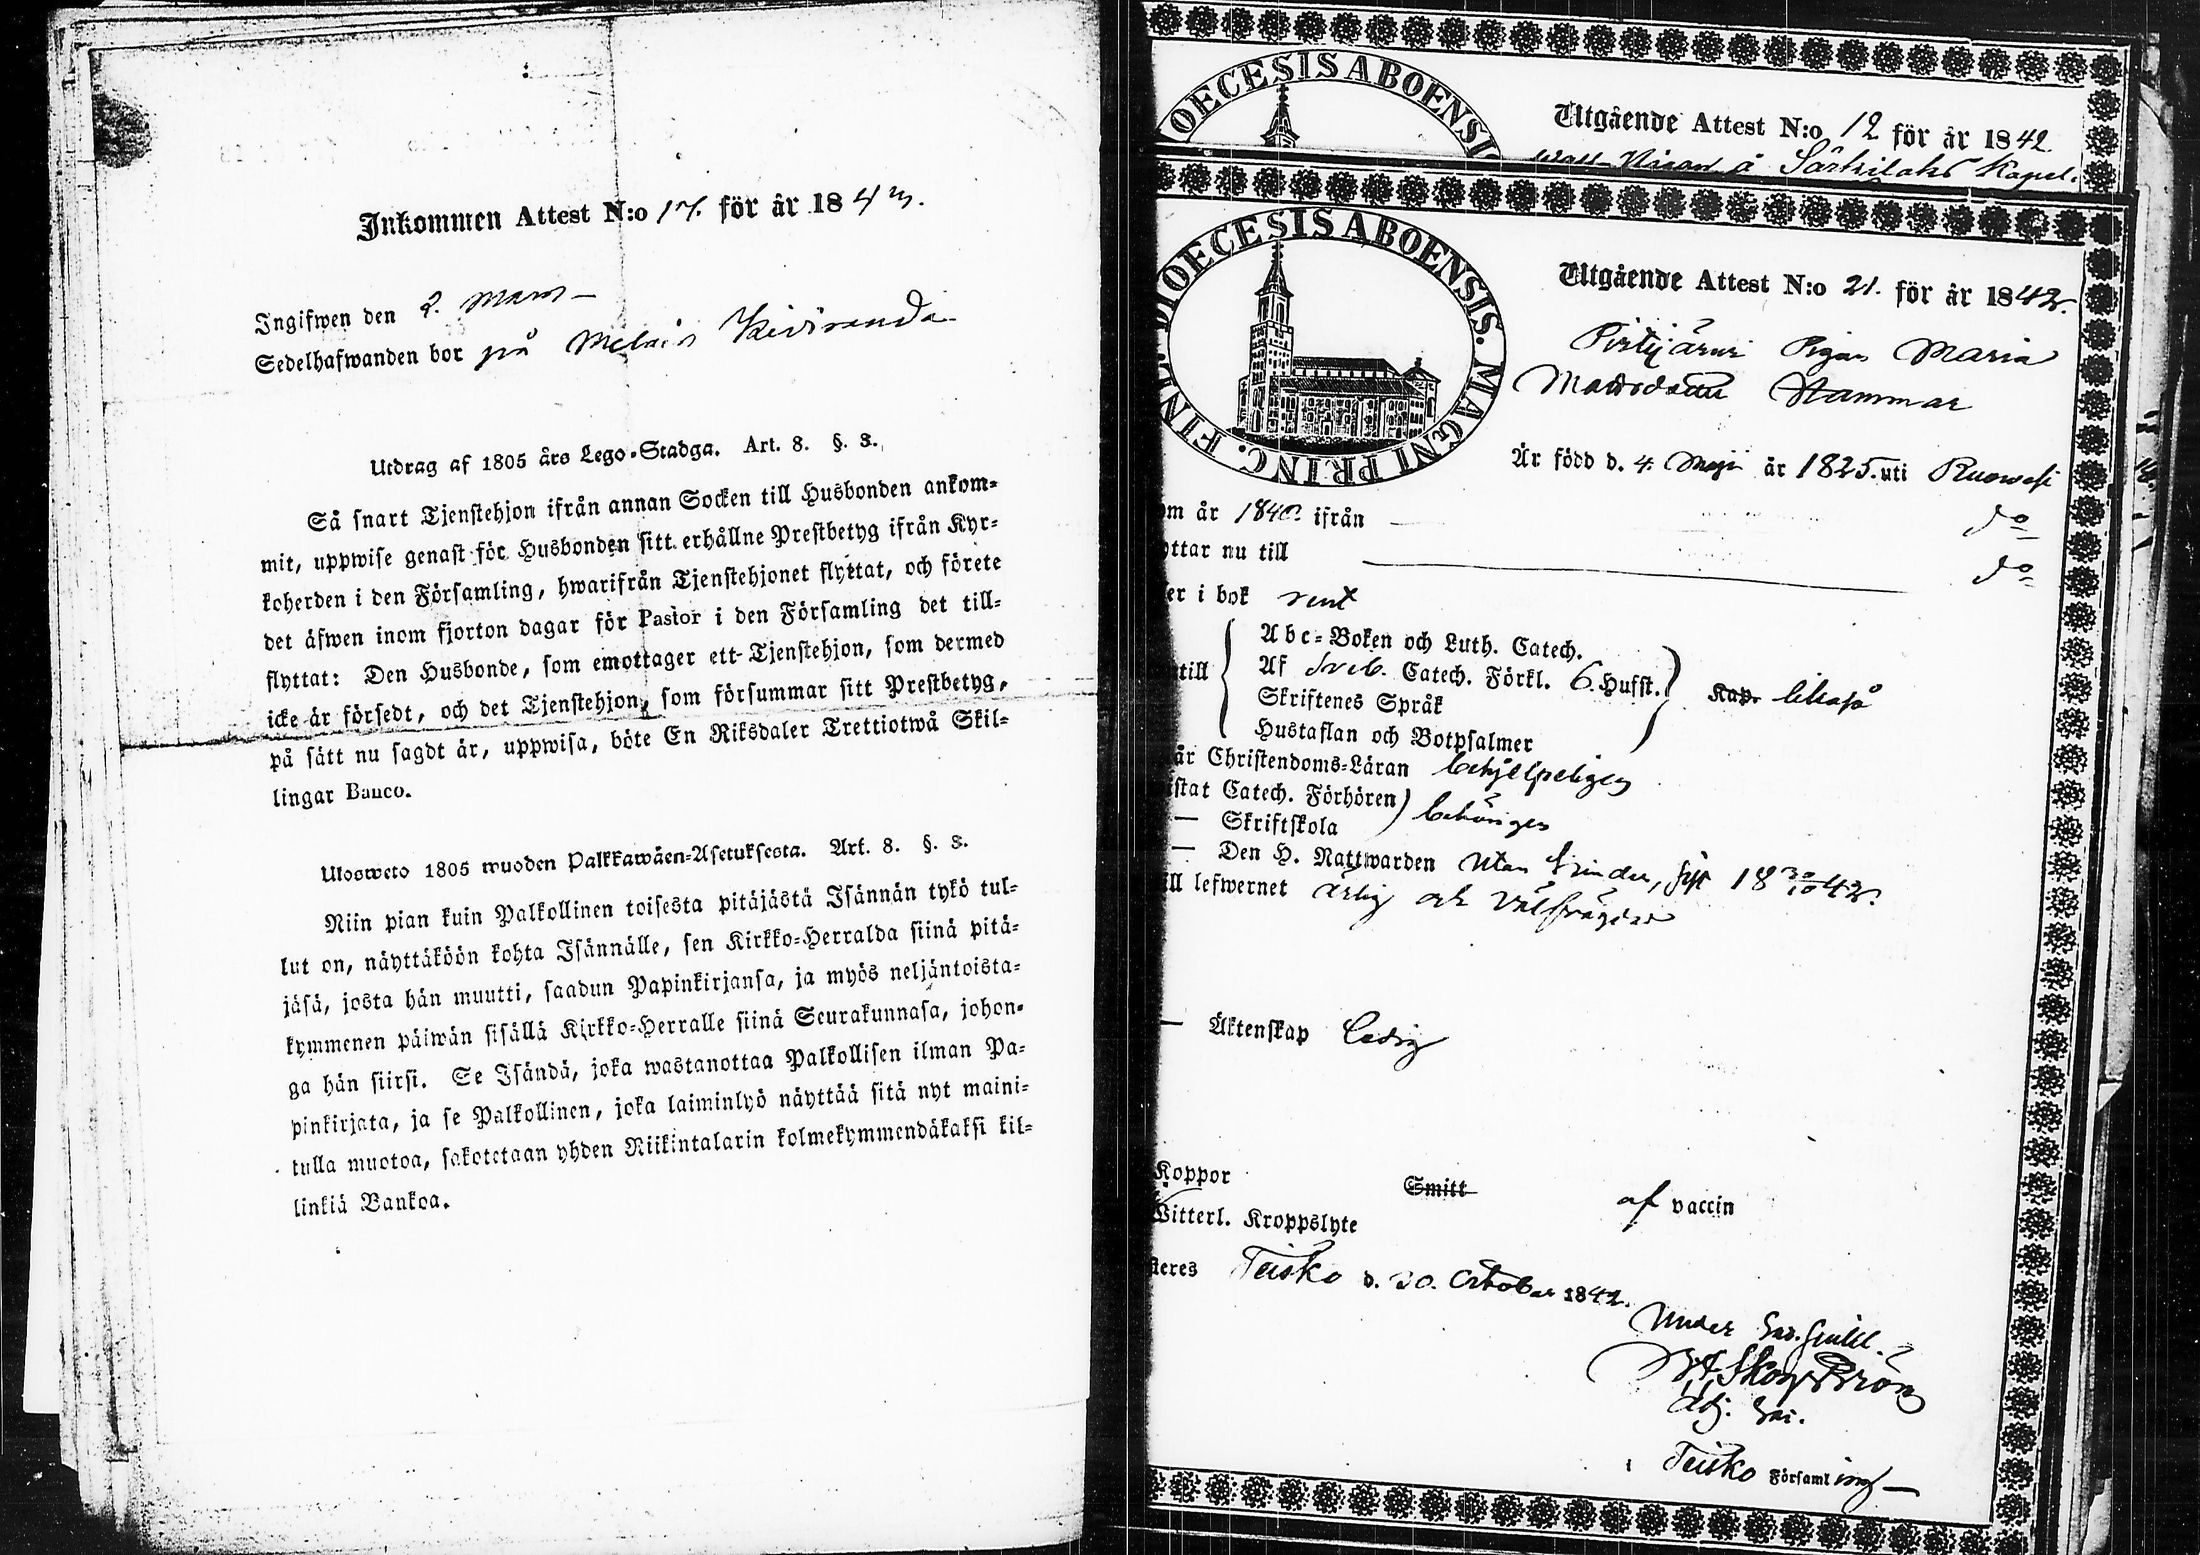 Inkommen Attest N:o 17. för år 184
Ingifwen den 2. Mars
Sedelhafwanden bor på Kiviranda
Utdrag af 1805 års Lego-Stadga. Art. 8. §. 3.
Så snart Tjenstehjon ifrån annan Socken till Husbonden ankom-
mit, uppwise genast för Husbonden sitt erhållne Prestbetyg ifrån Kyr-
koherden i den Församling, hwarifrån Tjenstehjonet flyttat, och förete
det äfwen inom fjorton dagar för Pastor i den Församling det till-
flyttat: Den Husbonde, som emottager ett Tjenstehjon, som dermed
icke är försedt, och det Tjenstehjon, som försummar sitt Prestbetyg,
på sätt nu sagdt är, uppwisa, böte En Riksdaler Trettiotwå Skil-
lingar Banco.
Ulosweto 1805 wuoden Palkkawäen-Asetuksesta. Art. 8. §. 3.
Niin pian kuin Palkollinen toisesta pitäjästä Isännän tykö tul-
lut on, näyttäköön kohta Isännälle, sen Kirkko-Herralda siinä pitä-
jäsä, josta hän muutti, saadun Papinkirjansa, ja myös neljäntoista-
kymmenen päiwän sisällä Kirkko-Herralle siinä Seurakunnasa, johon-
ga hän siirsi. Se Isändä, joka wastanottaa Palkollisen ilman Pa-
pinkirjata, ja se Palkollinen, joka laiminlyö näyttää sitä nyt maini-
tulla muotoa, sakotetaan yhden Riikintalarin kolmekymmendäkaksi kil-
linkiä Bankoa.
DIOECESIS ABOENSI
Utgående Attest N:o 12 för år 1842
å Särkilaks Kapel.
DIOECESIS ABOENSIS. MAGNI PRINC. FINL.
Utgående Attest N:o 21. för år 1842.
Pigan Maria
Stammar
Är född d. 4. Maji år 1825. uti Ruowesi
om år 1840. ifrån — do
yttar nu till do
er i bok rent
Abc-Boken och Luth. Catech.
till Af Sveb. Catech. Förkl. 6. Hufst. Kap. likaså
Skriftenes Språk
Hustaflan och Botpsalmer
år Christendoms-Läran behjelpeligen
istat Catech. Förhören behörigen
— Skriftskola
— Den H. Nattwarden utan hinder, sist 18 30/10 42.
ill lefwernet ärlig och välfrägdad
— Äktenskap ledig
Koppor Smitt af vaccin
Witterl. Kroppslyte
steres Teisko d. 30. October 1842.
Under
Skogström
Adj.
i Teisko Församling